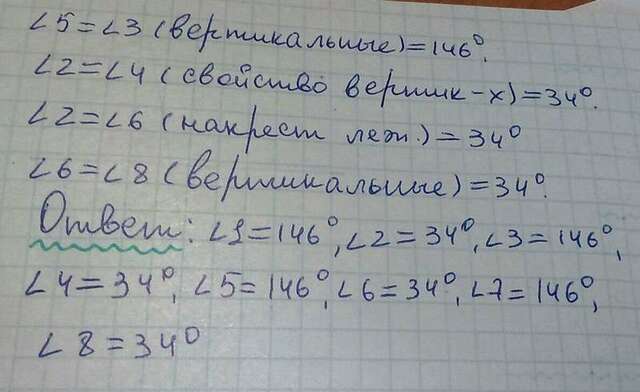 ∠5=∠3 (вертикальные)=146°.
∠2=∠4 (свойство вертик-х)=34°.
∠2=∠6 (накрест леж.)=34°
∠6=∠8 (вертикальные)=34°.
Ответ: ∠1=146°, ∠2=34°, ∠3=146°,
∠4=34°, ∠5=146°, ∠6=34°, ∠7=146°,
∠8=34°